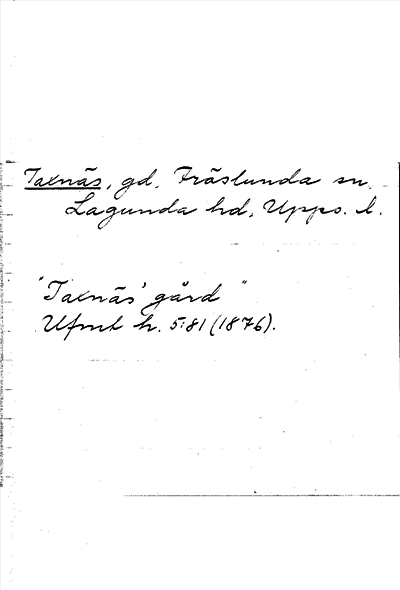 Taxnäs, gd, Fröslunda sn,
Lagunda hd, Upps. l.
"Taxnäs' gård"
Ufmt h. 5:81 (1876).